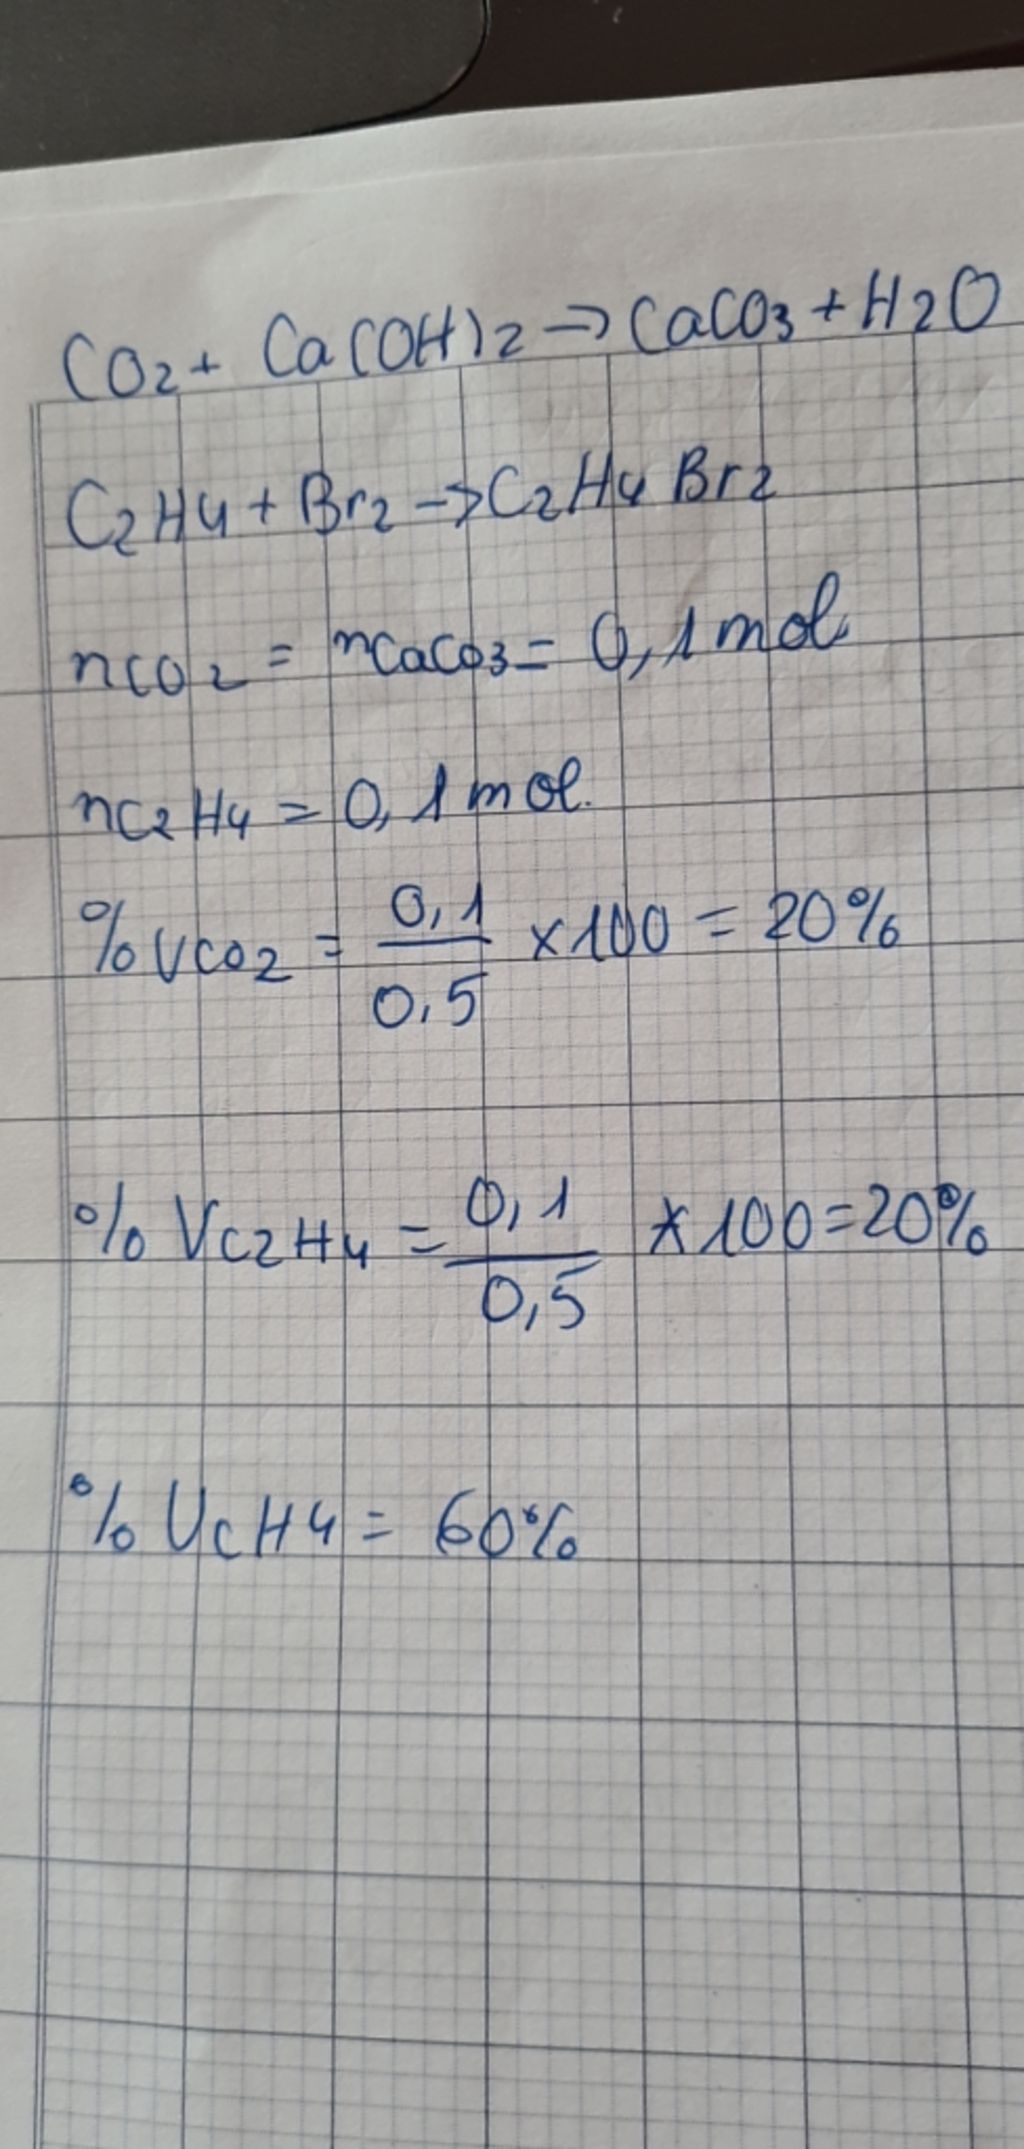 CO2 + Ca(OH)2 → CaCO3 + H2O
C2H4 + Br2 → C2H4Br2
nCO2 = nCaCO3 = 0,1 mol
nC2H4 = 0,1 mol.
%VCO2 = 0,1/0,5 x100 = 20%
%VC2H4 = 0,1/0,5 x100 = 20%
%VCH4 = 60%